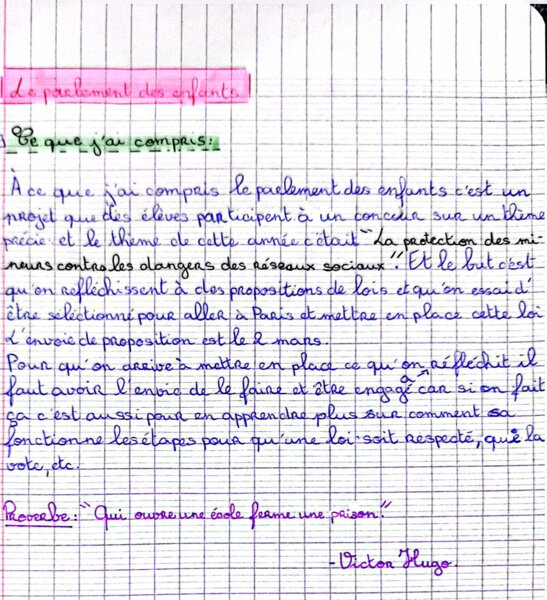 Le parlement des enfants
Ce que j'ai compris:
À ce que j'ai compris le parlement des enfants c'est un
projet que des élèves participent à un concour sur un thème
précis et le thème de cette année c'était "La protection des mi-
neurs contre les dangers des réseaux sociaux". Et le but c'est
qu'on refléchissent à des propositions de lois et qu'on essai d'
être sélectionné pour aller à Paris et mettre en place cette loi
L'envoie de proposition est le 2 mars.
Pour qu'on arrive à mettre en place ce qu'on réfléchit il
faut avoir l'envie de le faire et être engagé car si on fait
ça c'est aussi pour en apprendre plus sur comment sa
fonctionne les étapes pour qu'une loi soit respecté, que la
vote, etc.
Proverbe: "Qui ouvre une école ferme une prison."
-Victor Hugo